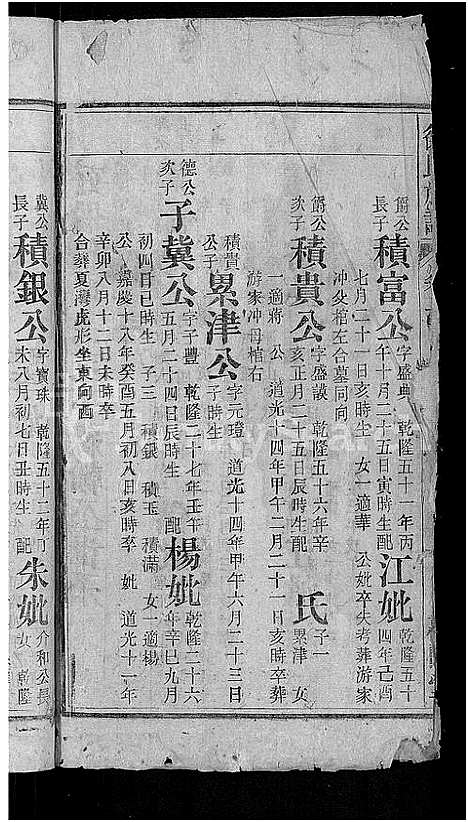 爵公長子 積富公 字盛典 乾隆五十一年丙午十月二十五日寅時生 配 江妣 乾隆五十四年己酉
七月二十一日亥時生 女一適華 公妣卒失考葬游家
冲父棺左合墓同向
爵公次子 積貴公 字盛謨 乾隆五十六年辛亥正月二十五日辰時生 配 氏 子一累津 女
一適蔣 公 道光十四年甲午二月二十一日亥時卒葬
游家冲母棺右
積貴公子 累津公 字元璔 道光十四年甲午六月二十三日子時生
德公次子 子冀公 字子豐 乾隆二十七年壬午五月二十四日辰時生 配 楊妣 乾隆二十六年辛巳九月
初四日巳時生 子三 積銀 積玉 積滿 女一適楊
公 嘉慶十八年癸酉五月初八日亥時卒 妣 道光十一年
辛卯八月十二日未時卒
合葬夏灣虎形坐東向西
冀公長子 積銀公 字寶珠 乾隆五十二年丁未八月初七日丑時生 配 朱妣 介和公長女 乾隆